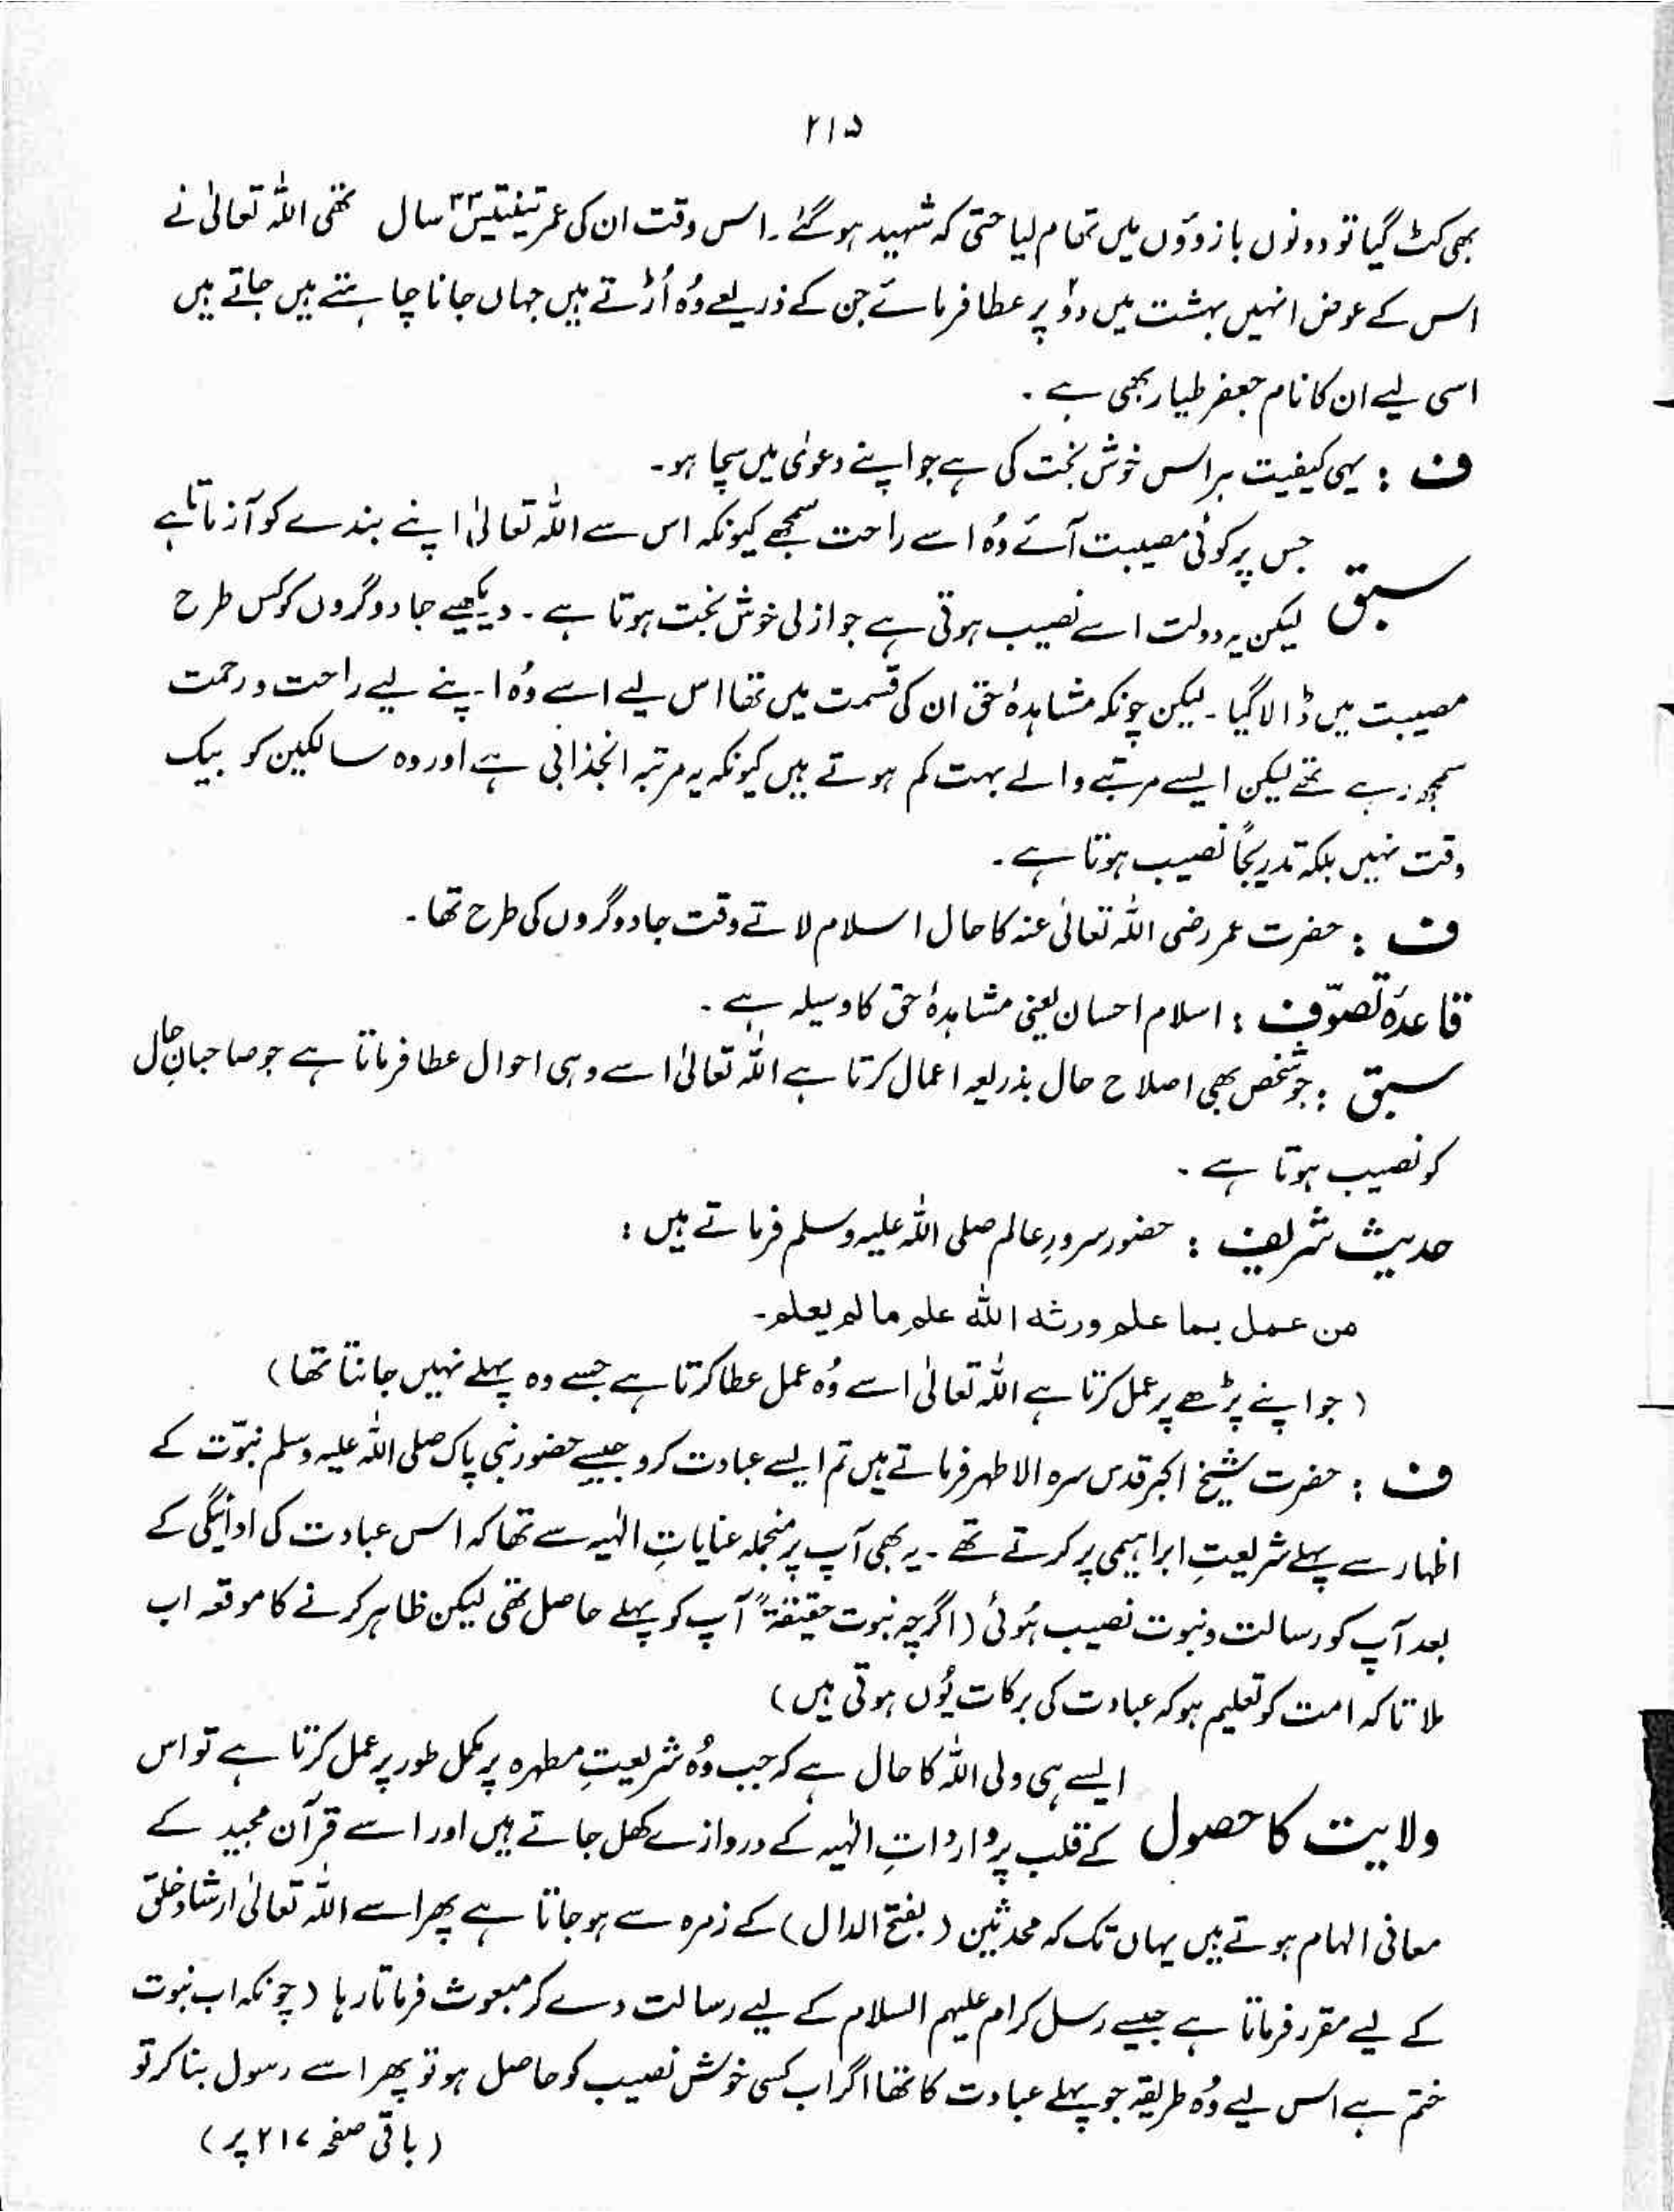 ۲۱۵
بھی کٹ گیا تو دونوں بازوؤں میں تمام لیا حتی کہ شہید ہو گئے۔ اس وقت ان کی عمر تینتیس ۳۳ سال تھی اللہ تعالیٰ نے
اس کے عوض انہیں بہشت میں دو پر عطا فرمائے جن کے ذریعے وُہ اُڑتے ہیں جہاں جانا چاہتے ہیں جاتے ہیں
اسی لیے ان کا نام جعفر طیار بھی ہے۔
ف : یہی کیفیت ہر اس خوش بخت کی ہے جو اپنے دعوٰی میں سچا ہو۔
جس پر کوئی مصیبت آئے وُہ اسے راحت سمجھے کیونکہ اس سے اللہ تعالیٰ اپنے بندے کو آزماتا ہے
سبق لیکن یہ دولت اسے نصیب ہوتی ہے جو ازلی خوش بخت ہوتا ہے۔ دیکھیے جادوگروں کو کس طرح
مصیبت میں ڈالا گیا۔ لیکن چونکہ مشاہدۂ حق ان کی قسمت میں تھا اس لیے اسے وُہ اپنے لیے راحت و رحمت
سمجھ رہے تھے لیکن ایسے مرتبے والے بہت کم ہوتے ہیں کیونکہ یہ مرتبہ انجذابی ہے اور وہ سالکین کو بیک
وقت نہیں بلکہ تدریجًا نصیب ہوتا ہے۔
ف : حضرت عمر رضی اللہ تعالیٰ عنہ کا حال اسلام لاتے وقت جادوگروں کی طرح تھا۔
قاعدۂ تصوّف : اسلام احسان یعنی مشاہدۂ حق کا وسیلہ ہے۔
سبق : جو شخص بھی اصلاح حال بذریعہ اعمال کرتا ہے اللہ تعالیٰ اسے وہی احوال عطا فرماتا ہے جو صاحبانِ حال
کو نصیب ہوتا ہے۔
حدیث شریف : حضور سرورِ عالم صلی اللہ علیہ وسلم فرماتے ہیں :
من عمل بما علم ورثه الله علم ما لم يعلم۔
(جو اپنے پڑھے پر عمل کرتا ہے اللہ تعالیٰ اسے وُہ عمل عطا کرتا ہے جسے وہ پہلے نہیں جانتا تھا)
ف : حضرت شیخ اکبر قدس سرہ الاطہر فرماتے ہیں تم ایسے عبادت کرو جیسے حضور نبی پاک صلی اللہ علیہ وسلم نبوّت کے
اظہار سے پہلے شریعتِ ابراہیمی پر کرتے تھے۔ یہ بھی آپ پر منجملہ عنایاتِ الٰہیہ سے تھا کہ اس عبادت کی ادائیگی کے
بعد آپ کو رسالت و نبوت نصیب ہُوئی (اگرچہ نبوت حقیقۃً آپ کو پہلے حاصل تھی لیکن ظاہر کرنے کا موقعہ اب
ملا تاکہ امت کو تعلیم ہو کہ عبادت کی برکات یُوں ہوتی ہیں)
ایسے ہی ولی اللہ کا حال ہے کہ جب وُہ شریعتِ مطہرہ پر مکمل طور پر عمل کرتا ہے تو اس
ولایت کا حصول کے قلب پر وارداتِ الٰہیہ کے دروازے کھل جاتے ہیں اور اسے قرآن مجید کے
معانی الہام ہوتے ہیں یہاں تک کہ محدثین (بفتح الدال) کے زمرہ سے ہو جاتا ہے پھر اسے اللہ تعالیٰ ارشادِ خلق
کے لیے مقرر فرماتا ہے جیسے رسل کرام علیہم السلام کے لیے رسالت دے کر مبعوث فرماتا رہا (چونکہ اب نبوت
ختم ہے اس لیے وُہ طریقہ جو پہلے عبادت کا تھا اگر اب کسی خوش نصیب کو حاصل ہو تو پھر اسے رسول بنا کر تو
(باقی صفحہ ۲۱۷ پر)